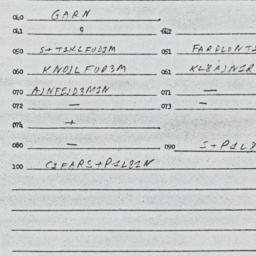 040 GARN
041 0 042
050 S+TIKLFUDIM 051 FARDLONTI
060 KNOILFUDEM 061 KLBAJNIR
070 AJNFEIDEMIN 071 —
072 — 073 —
074 +
080 — 090 I+PILY
100 CIFARS+PILIIN